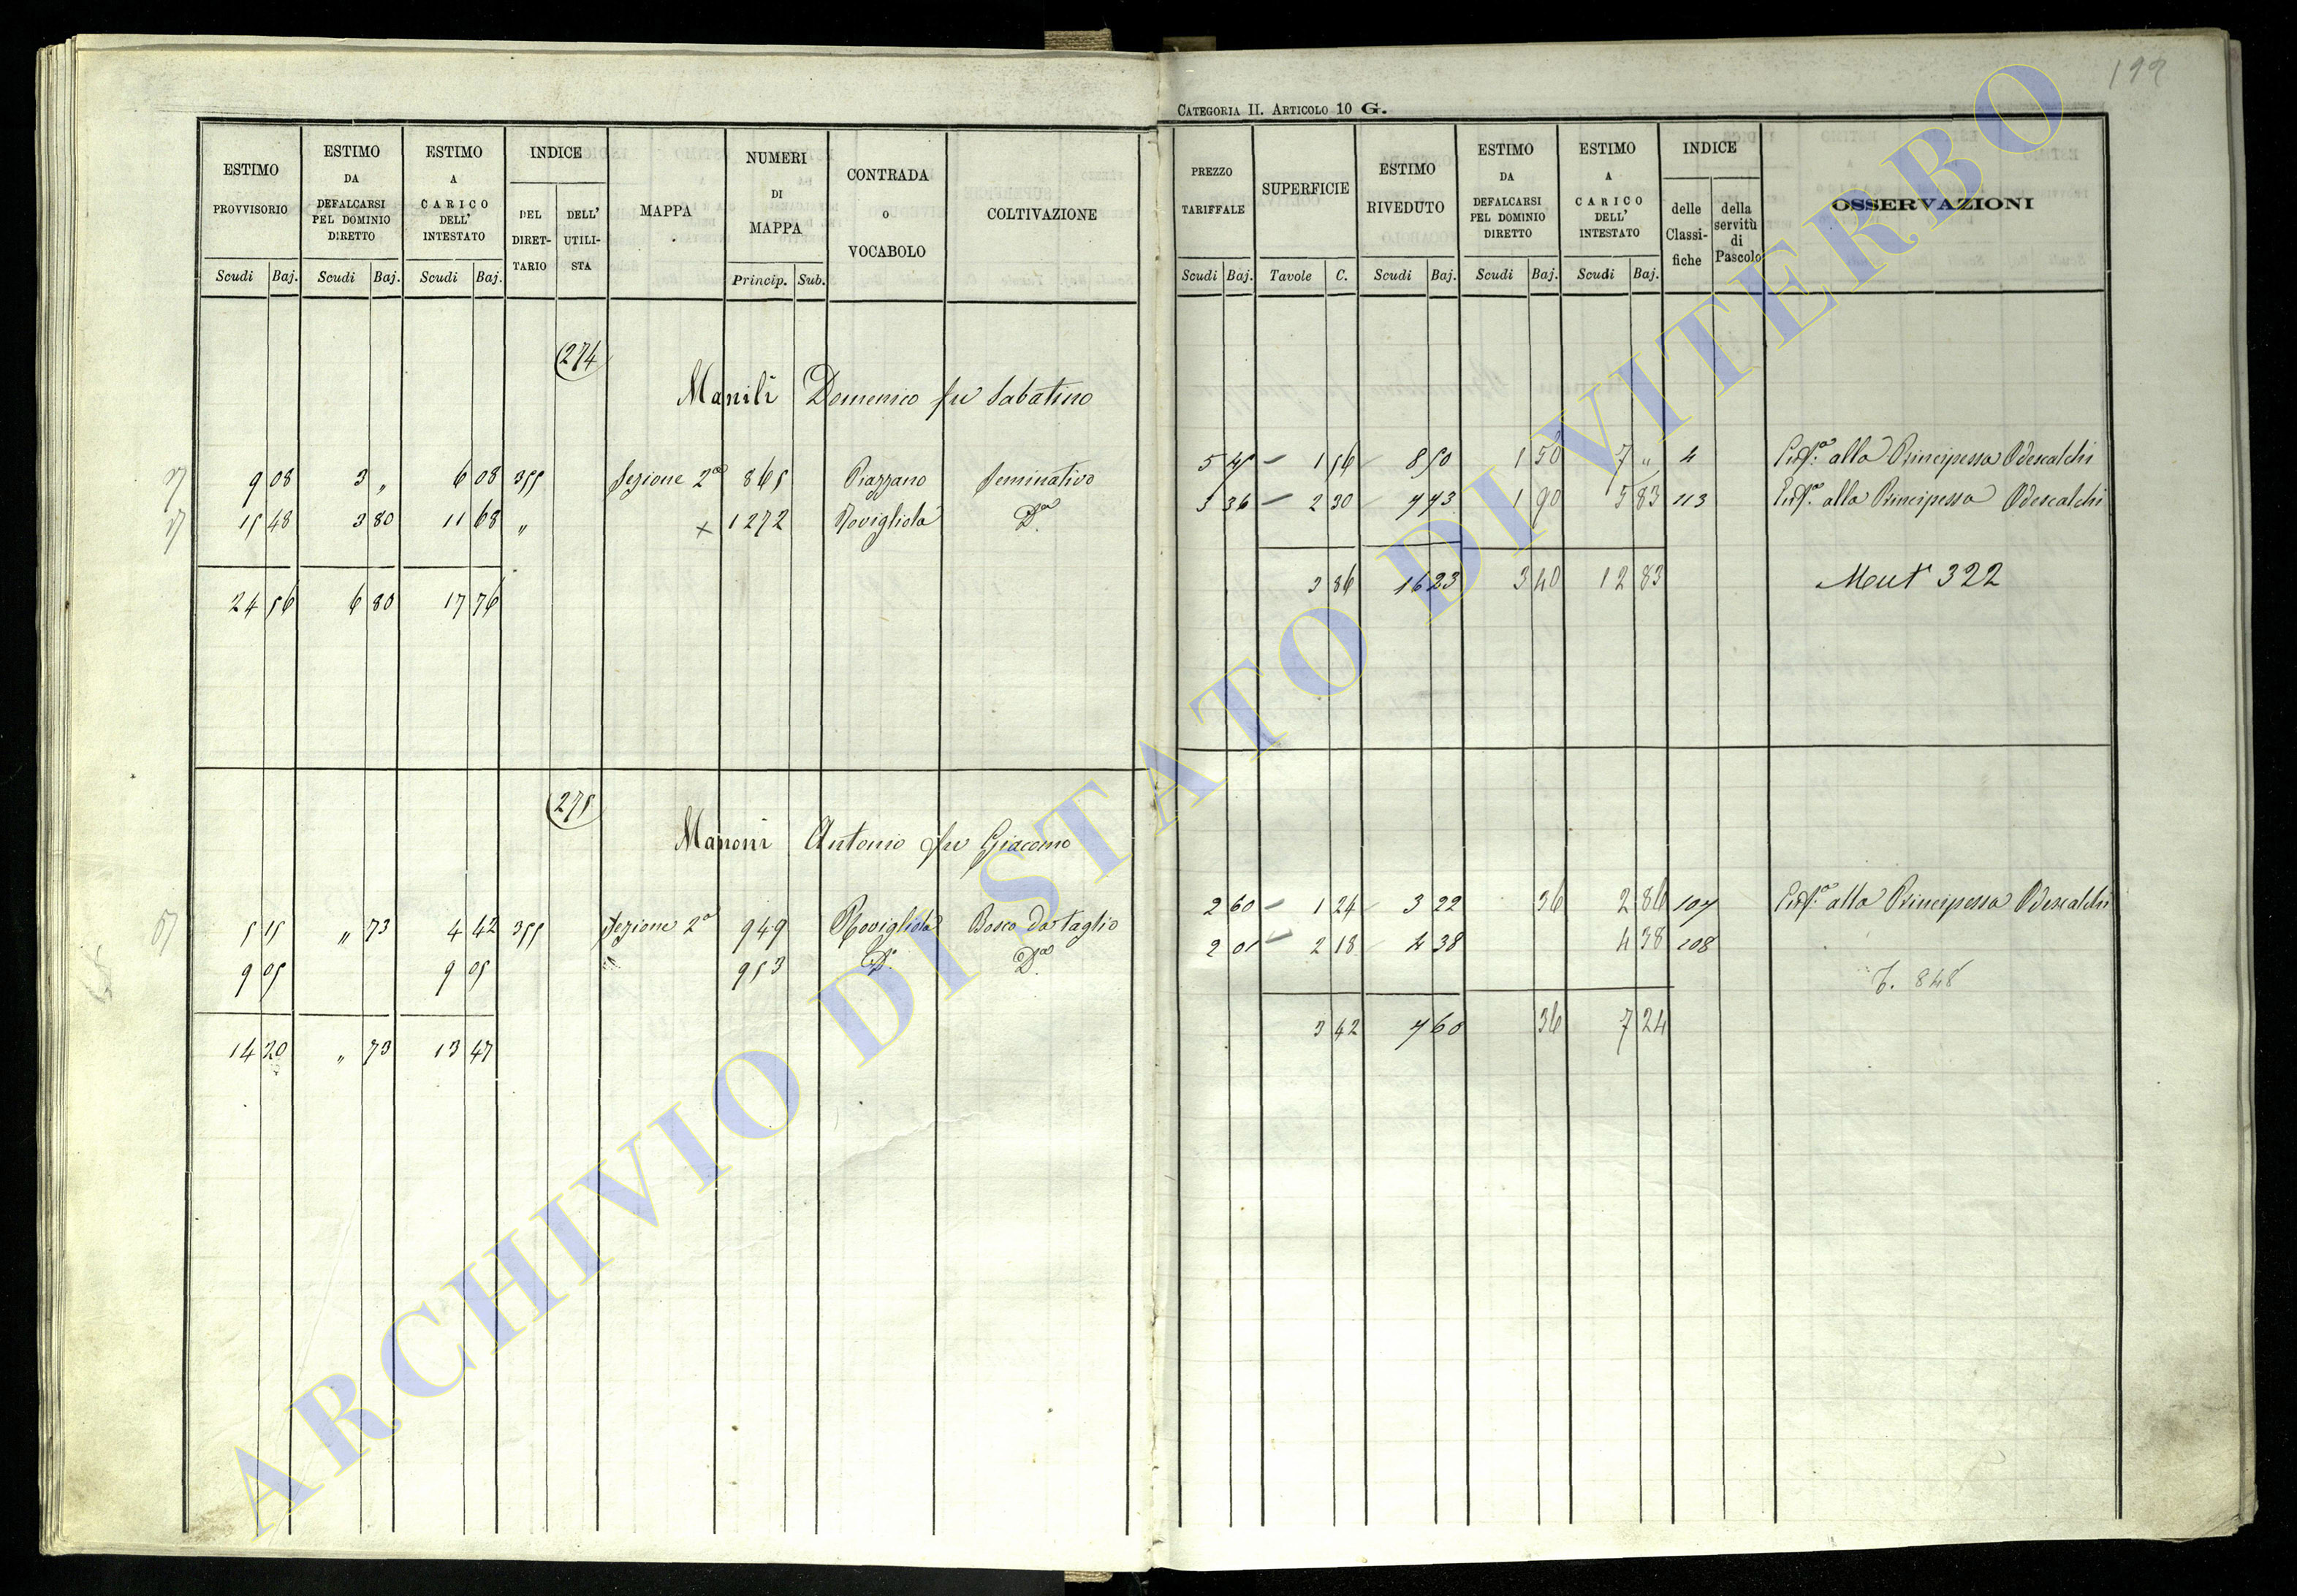 199
CATEGORIA II. ARTICOLO 10 G.
ESTIMO PROVVISORIO
ESTIMO DA DEFALCARSI PEL DOMINIO DIRETTO
ESTIMO A CARICO DELL' INTESTATO
INDICE
DEL DIRET-TARIO
DELL' UTILI-STA
MAPPA
NUMERI DI MAPPA
CONTRADA o VOCABOLO
COLTIVAZIONE
Scudi Baj. Scudi Baj. Scudi Baj. Princip. Sub.
PREZZO TARIFFALE
SUPERFICIE
ESTIMO RIVEDUTO
ESTIMO DA DEFALCARSI PEL DOMINIO DIRETTO
ESTIMO A CARICO DELL' INTESTATO
INDICE
delle Classi-fiche
della servitù di Pascolo
OSSERVAZIONI
Scudi Baj. Tavole C. Scudi Baj. Scudi Baj. Scudi Baj.
274
Manili Domenico fu Sabatino
9 08 3 „ 6 08 355 Sezione 2a 865 Piazzano Seminativo
5 45 1 56 8 50 1 50 7 „ 4 Enfa. alla Principessa Odescalchi
15 48 3 80 11 68 „ x 1272 Rovigliola Do.
3 36 2 30 7 73 1 90 5 83 113 Enfa. alla Principessa Odescalchi
24 56 6 80 17 76
3 86 16 23 3 40 12 83 Mut 322
275
Manoni Antonio fu Giacomo
5 15 „ 73 4 42 355 Sezione 2a 949 Rovigliola Bosco da taglio
2 60 1 24 3 22 36 2 86 107 Enfa. alla Principessa Odescalchi
9 05 9 05 953 Do. Do.
2 01 2 18 4 38 4 38 108
14 20 „ 73 13 47
3 42 7 60 36 7 24
848
ARCHIVIO DI STATO DI VITERBO